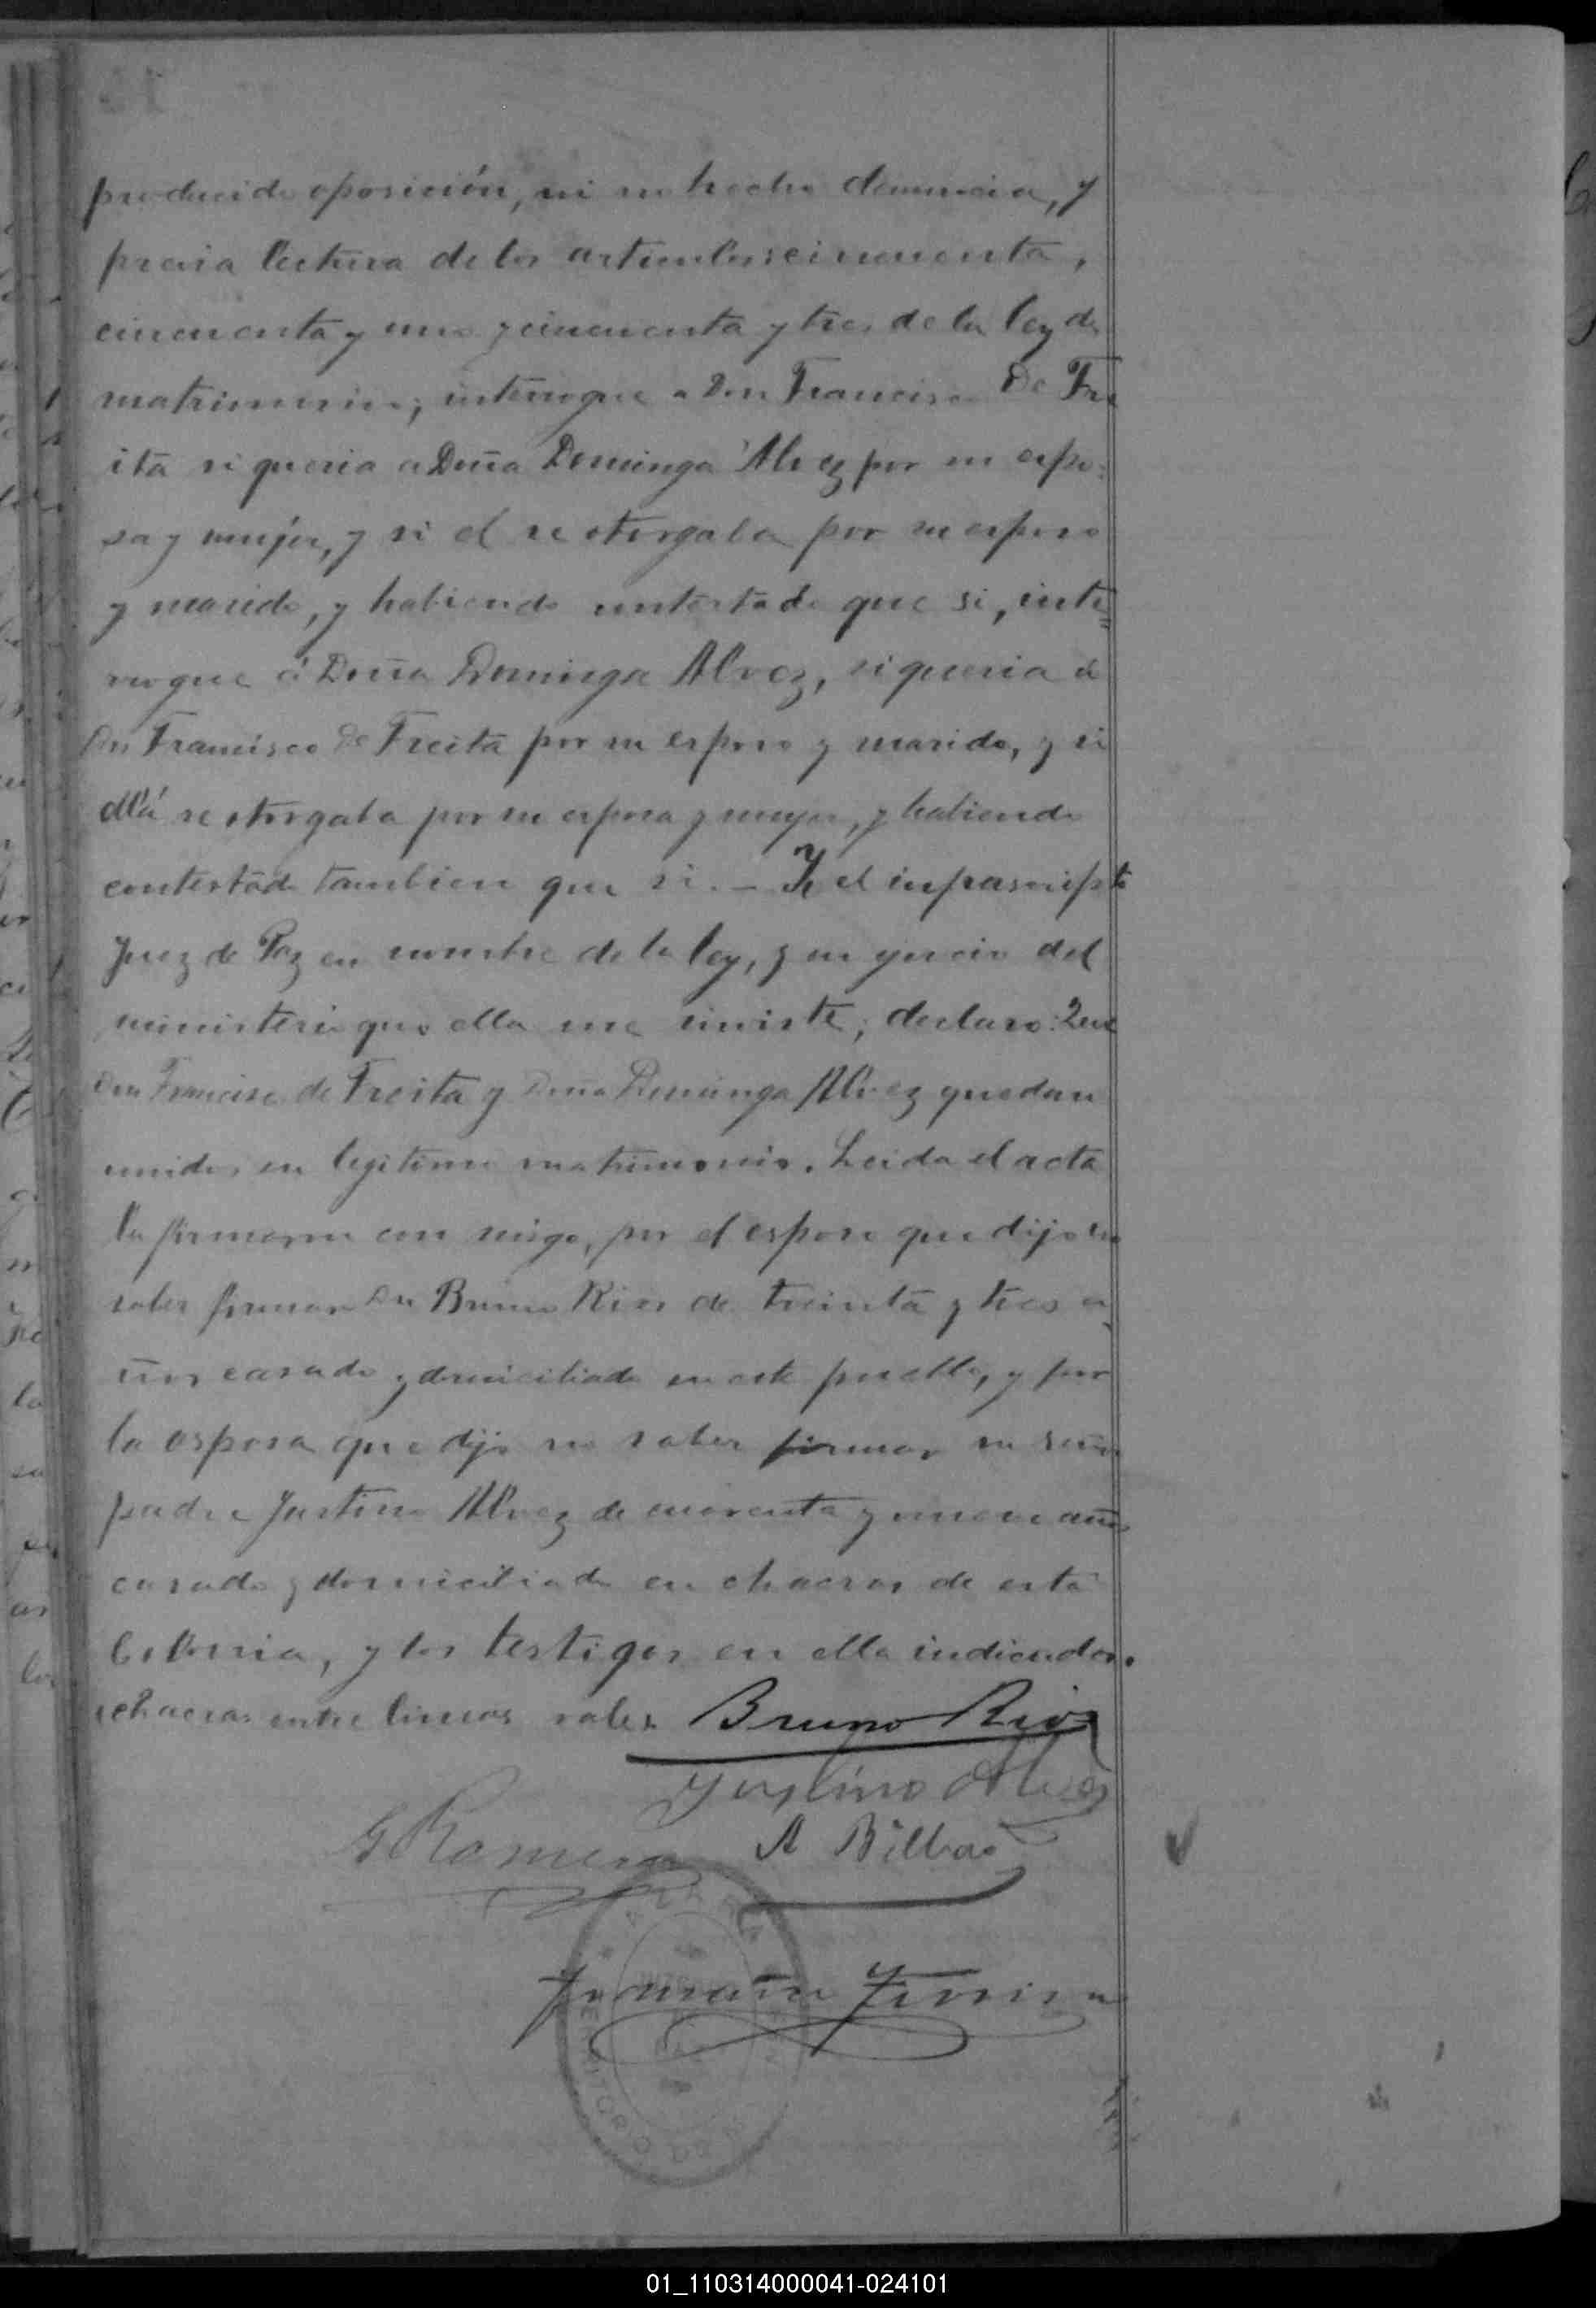 producido oposición, ni se hecho denuncia, y
previa lectura de los articulos cincuenta,
cincuenta y uno y cincuenta y tres de la ley de
matrimonio; interrogue a Don Francisco De Fre
ita si queria a Doña Dominga Alvez por su espo-
sa y mujer, y si el se otorgaba por su esposo
y marido, y habiendo contestado que si, inte=
rrogue á Doña Dominga Alvez, si queria a
Don Francisco De Freita por su esposo y marido, y si
ella se otorgaba por su esposa y mujer, y habiendo
contestado tambien que si. — Yo el infrascripto
Juez de Paz en nombre de la ley, y en ejercicio del
ministerio que ella me inviste, declaro: Que
Don Francisco de Freita y Doña Dominga Alvez quedan
unidos en legitimo matrimonio. Leida el acta
la firmaron con migo, por el esposo que dijo no
saber firmar Don Bruno Rios de treinta y tres a
ños casado y domiciliado en este pueblo, y por
la esposa que dijo no saber firmar su señor
padre Justino Alvez de cuarenta y nueve años
casado y domiciliado en chacras de esta
Colonia, y los testigos en ella indicados.
chacras entre lineas vale.
Bruno Rios
Justino Alvez
G Romero
A Bilbao
01_110314000041-024101